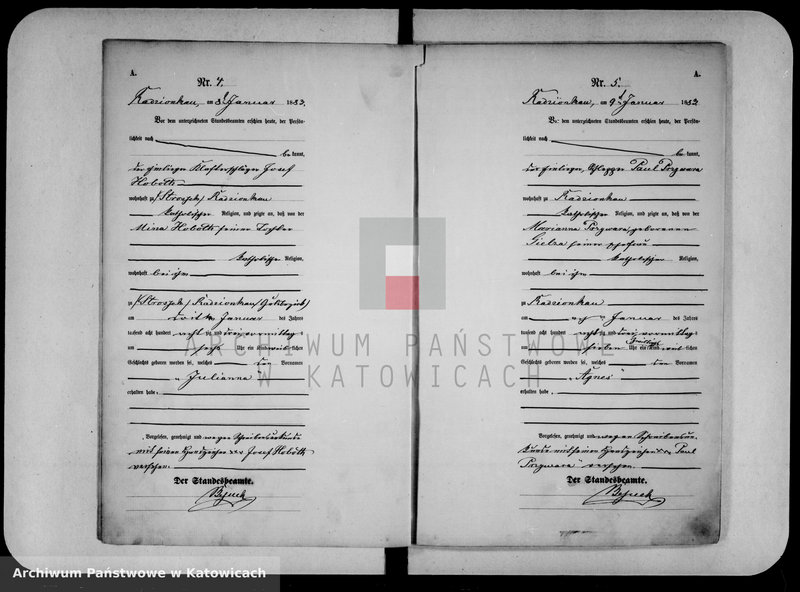 A.
Nr. 4.
Radzionkau, am 8t Januar 1883.
Vor dem unterzeichneten Standesbeamten erschien heute, der Persön-
lichkeit nach
be kannt,
der Häusler Josef
Hobōth
wohnhaft zu (Stroszek) Radzionkau
katholischer Religion, und zeigte an, daß von der
Mina Hobōth seiner Tochter
katholischer Religion,
wohnhaft bei ihm
zu (Stroszek) Radzionkau (Gutsbezirk)
am Januar des Jahres
tausend acht hundert acht zig und drei, vormittags
um sechs Uhr ein Kind weib lichen
Geschlechts geboren worden sei, welches den Vornamen
„Julianna“
erhalten habe.
Vorgelesen, genehmigt und wegen Schreibensunkunde
mit seinem Handzeichen xxx Josef Hobōth
versehen.
Der Standesbeamte.
A.
Nr. 5.
Radzionkau, am 9t Januar 1883.
Vor dem unterzeichneten Standesbeamten erschien heute, der Persön-
lichkeit nach
be kannt,
der Schlepper Paul Pozwara
wohnhaft zu Radzionkau
katholischer Religion, und zeigte an, daß von der
Marianna Pozwara geborenen
seiner Ehefrau
katholischer Religion,
wohnhaft bei ihm
zu Radzionkau
am Januar des Jahres
tausend acht hundert acht zig und drei, vormittags
um sieben Uhr ein Kind weib lichen
Geschlechts geboren worden sei, welches den Vornamen
„Agnes“
erhalten habe.
Vorgelesen, genehmigt und wegen Schreibensun-
kunde mit seinem Handzeichen Paul
Pozwara versehen.
Der Standesbeamte.
ARCHIWUM PAŃSTWOWE
W KATOWICACH
Archiwum Państwowe w Katowicach